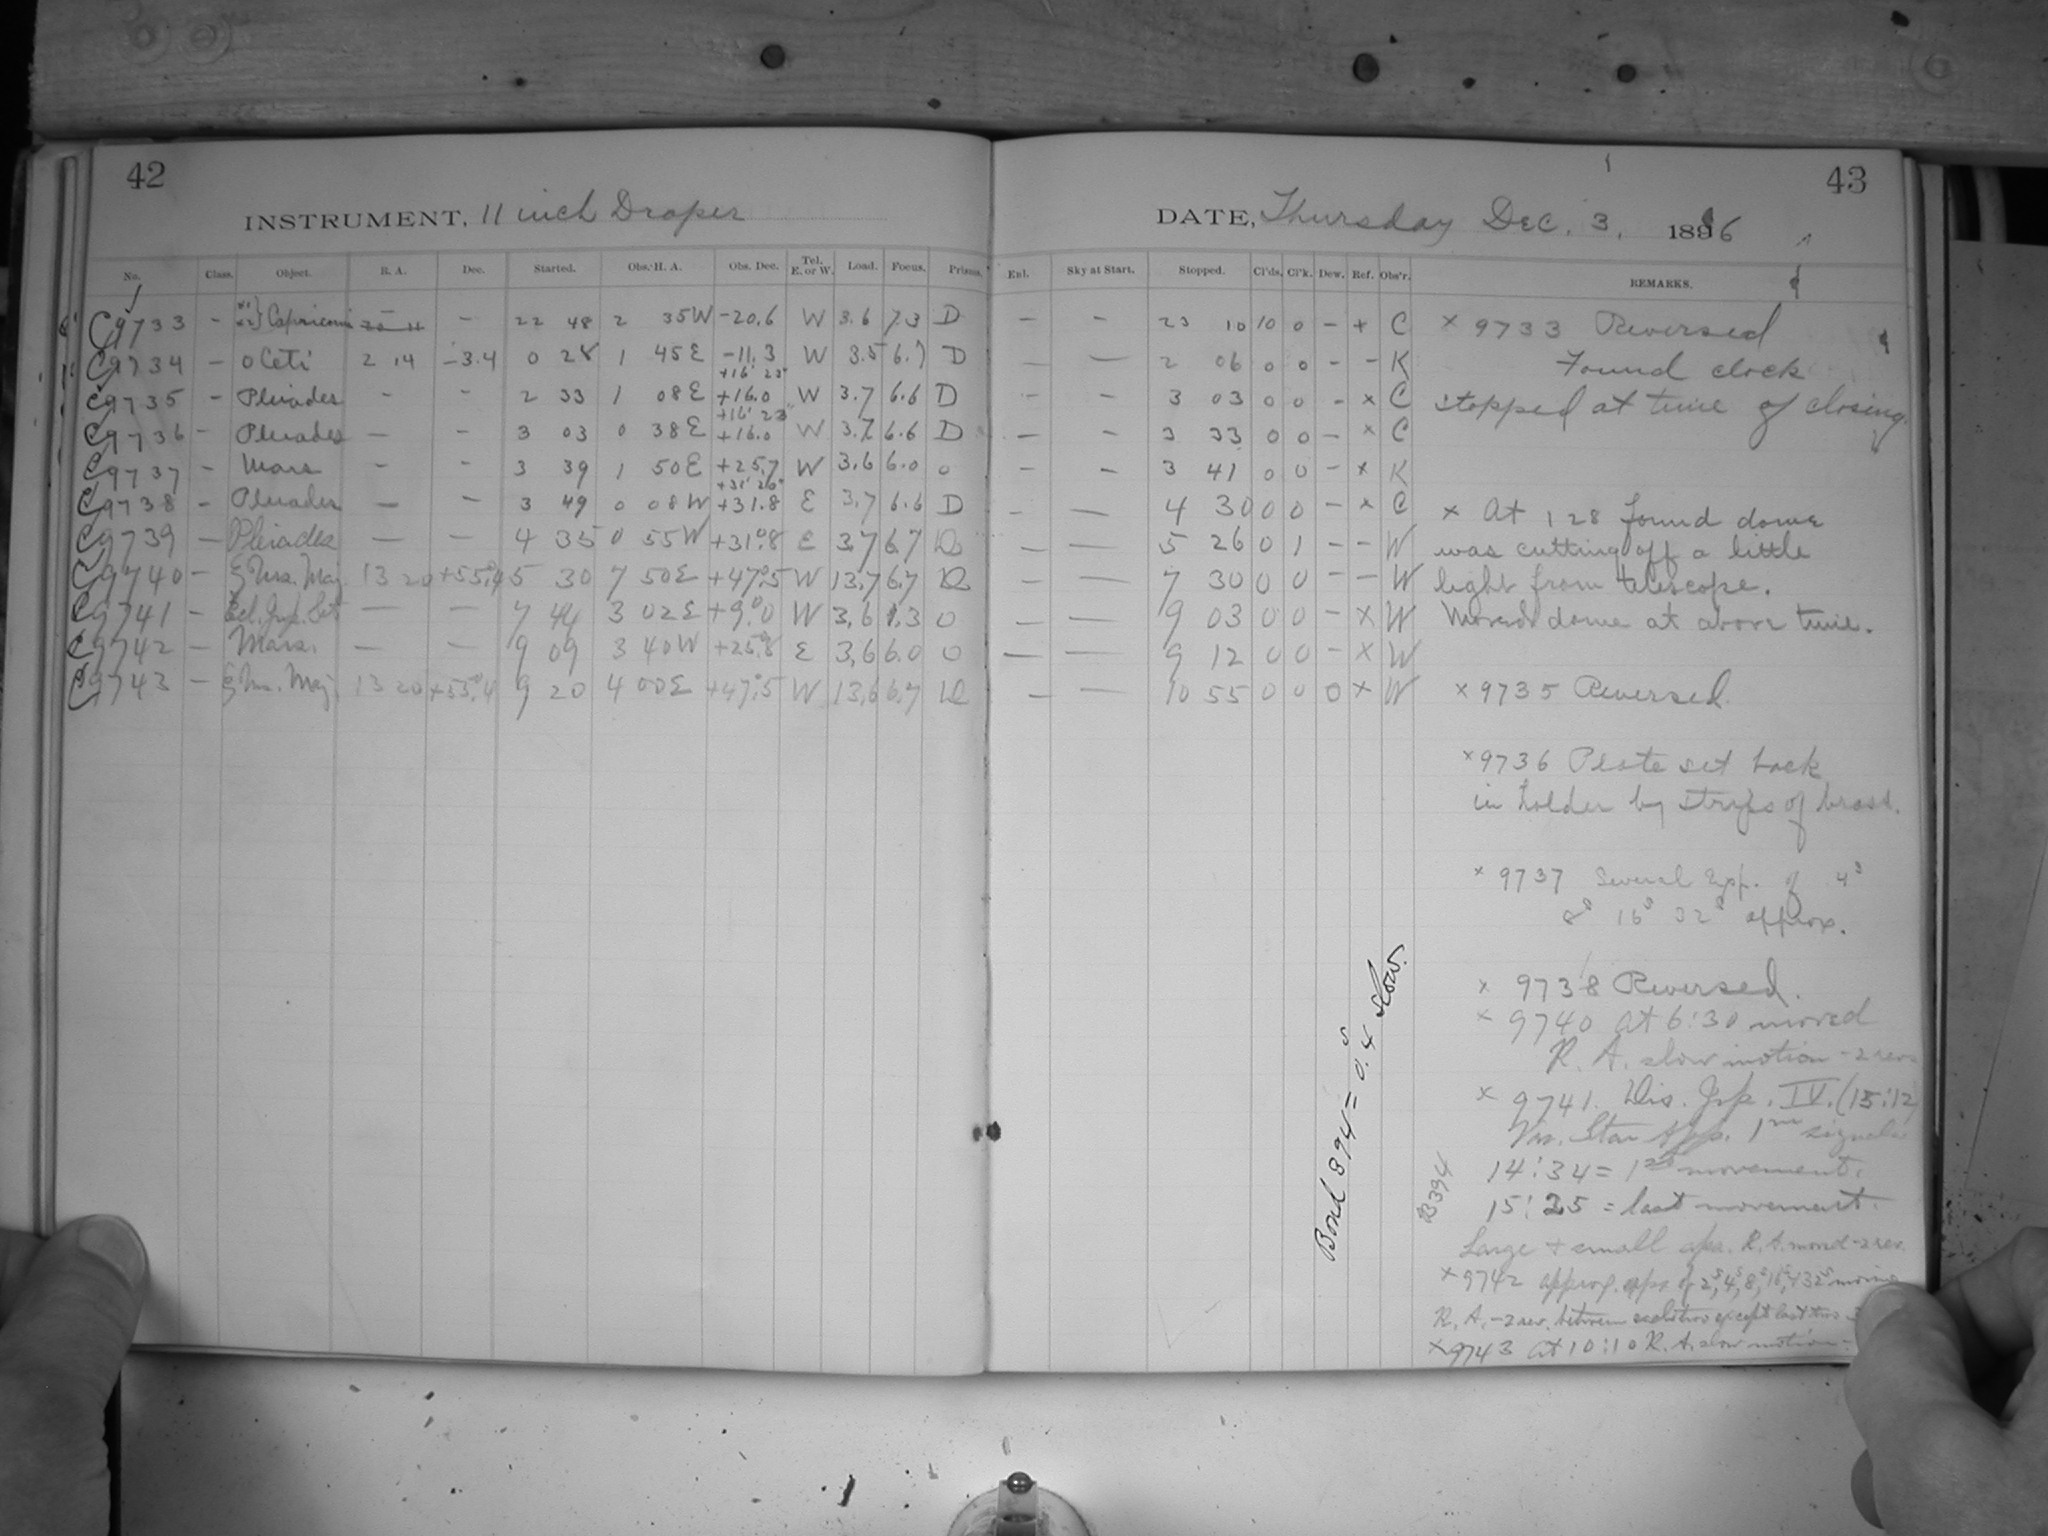 42
INSTRUMENT, 11 inch Draper
No. Class. Object. R. A. Dec. Started. Obs. H. A. Obs. Dec. Tel. E. or W. Load. Focus. Prisms.
C9733 - Capricorni 22 48 2 35W -20.6 W 3.6 7.3 D
C9734 - o Ceti 2 14 -3.4 0 28 1 45E -11.3 W 3.5 6.7 D
+16° 23'
C9735 - Pleiades - - 2 33 1 08E +16.0 W 3.7 6.6 D
+16° 23'
C9736 - Pleiades - - 3 03 0 38E +16.0 W 3.7 6.6 D
C9737 - Mars - - 3 39 1 50E +25.7 W 3.6 6.0 0
+31° 26'
C9738 - Pleiades - - 3 49 0 08W +31.8 E 3.7 6.6 D
C9739 - Pleiades - - 4 35 0 55W +31.8 E 3.7 6.7 D
C9740 - ξ Urs. Maj. 13 20 +55.4 5 30 7 50E +47.5 W 13.7 6.7 D
C9741 - Ecl. Jup. Sat. - - 7 44 3 02E +9.0 W 3.6 1.3 0
C9742 - Mars. - - 9 09 3 40W +25.8 E 3.6 6.0 0
C9743 - ξ Urs. Maj. 13 20 +55.4 9 20 4 00E +47.5 W 13.6 6.7 D
43
DATE, Thursday Dec. 3, 1896
Enl. Sky at Start. Stopped. Cl'ds. Cl'k. Dew. Ref. Obs'r. REMARKS.
- - 23 10 10 0 - + C
- - 2 06 0 0 - - K
- - 3 03 0 0 - x C
- - 3 33 0 0 - x C
- - 3 41 0 0 - x K
- - 4 30 0 0 - x C
- - 5 26 0 1 - - W
- - 7 30 0 0 - - W
- - 9 03 0 0 - x W
- - 9 12 0 0 - x W
- - 10 55 0 0 0 x W
x 9733 Reversed
Found clock
stopped at time of closing.
x At 1 28 found dome
was cutting off a little
light from telescope.
Moved dome at above time.
x 9735 Reversed.
x 9736 Plate set back
in holder by strips of brass.
x 9737 Several Exp. of 4s
8s 16s 32s approx.
x 9738 Reversed.
x 9740 at 6:30 moved
R. A. slow motion -2 revs
x 9741. Dis. Jup. IV. (15:12)
Star App. 1st signals
14:34 = 1st movement.
15:25 = last movement.
Large + small aps. R. A. moved -2 rev.
x 9742 approx. exps of 2s, 4s, 8s, 16s, + 32s moving
R. A. -2 rev. between each two except last two
x 9743 at 10:10 R. A. slow motion -
Bond 394 = 0.s4 slow.
B394